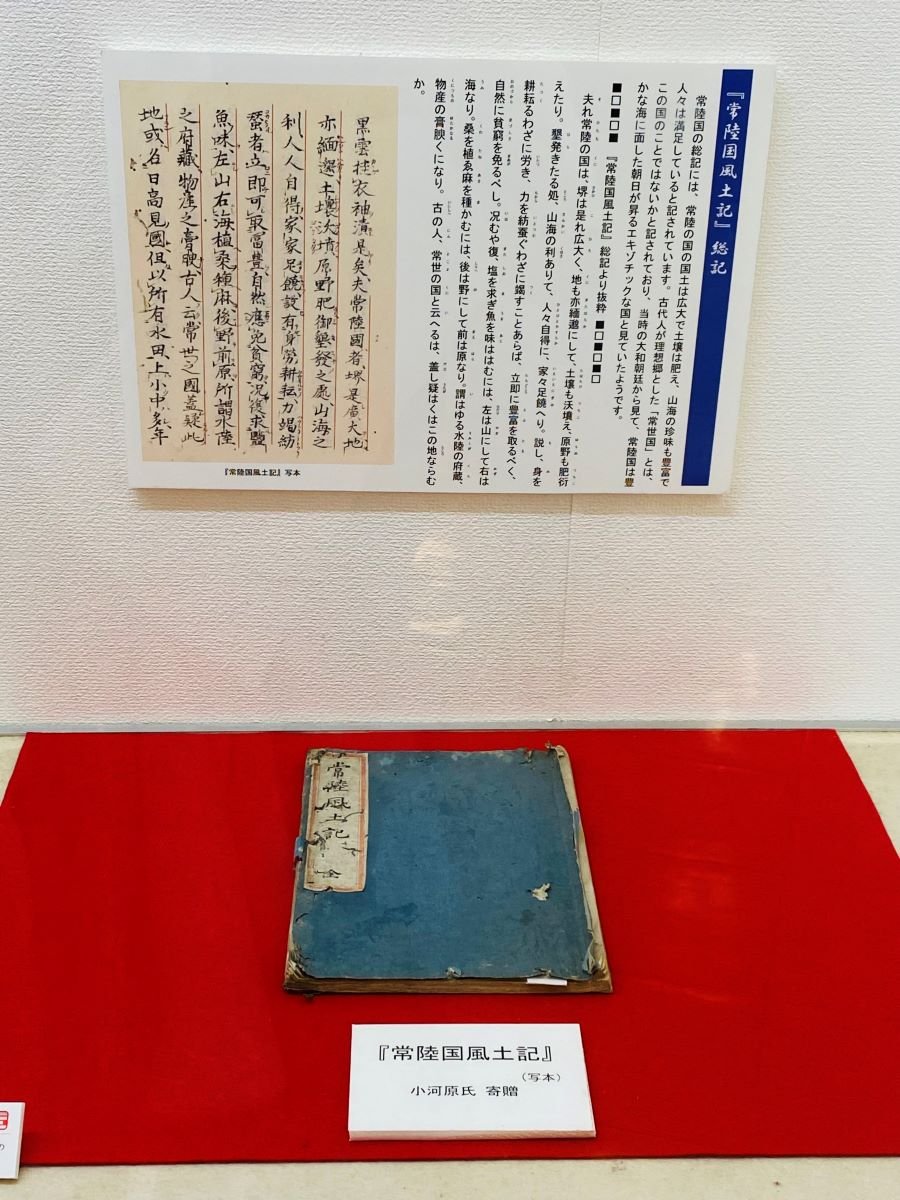 『常陸国風土記』総記
常陸国の総記には、常陸の国の国土は広大で土壌は肥え、山海の珍味も豊富で
人々は満足していると記されています。古代人が理想郷とした「常世国」とは、
この国のことではないかと記されており、当時の大和朝廷から見て、常陸国は豊
かな海に面した朝日が昇るエキゾチックな国と見ていたようです。
■□■□■ 『常陸国風土記』総記より抜粋 ■□■□■□
夫れ常陸の国は、堺は是れ広大く、地も亦緬邈にして、土壌も沃墳え、原野も肥衍
えたり。墾発きたる処、山海の利ありて、人々自得に、家々足饒へり。説し、身を
耕耘るわざに労き、力を紡蚕ぐわざに竭すことあらば、立即に豊富を取るべく、
自然に貧窮を免るべし。况むや復、塩を求ぎ魚を味ははむには、左は山にして右は
海なり。桑を植ゑ麻を種かむには、後は野にして前は原なり。謂はゆる水陸の府蔵、
物産の膏腴くになり。古の人、常世の国と云へるは、蓋し疑はくはこの地ならむ
か。
黒雲挂衣袖漬是矣夫常陸國者堺是廣大地
亦緬邈土壤沃墳原野肥衍墾發之處山海之
利人人自得家家足饒設有身労耕耘力竭紡
蚕者立即可取富豊自然應免貧窮况復求塩
魚味左山右海植桒種麻後野前原所謂水陸
之府藏物産之膏腴古人云常世之國蓋疑此
地或名曰高見國但以所有水田上小中多年
『常陸国風土記』写本
常陸風土記 全
『常陸国風土記』
（写本）
小河原氏 寄贈
の